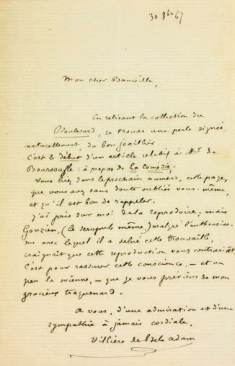 30 9bre 67
Mon cher Banville,
En relisant la collection du
Boulevard, je trouve une perle signée
naturellement du bon joaillier.
C'est le début d'un article relatif à Mr de
à propos de
Vous lirez dans le prochain numéro, cette page,
que vous avez sans doute oubliée vous-même,
et qu'il est bon de rappeler.
J'ai pris sur moi de la reproduire, mais
(le scrupule même) malgré l'enthousias-
me avec lequel il a salué cette trouvaille,
craignait que cette reproduction vous contrariât
C'est pour rassurer cette conscience, — et un
peu la mienne, — que je vous préviens de mon
gracieux
A vous, d'une admiration et d'une
sympathie à jamais cordiale.
Villiers de l'Isle Adam